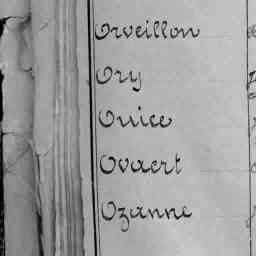 Orveillon
Ory
Ouice
Ovaert
Ozanne